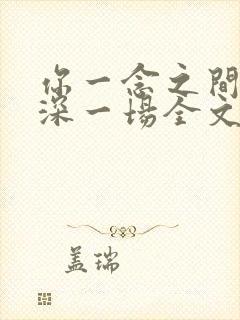 你一念之間
深一場全文
盖瑞